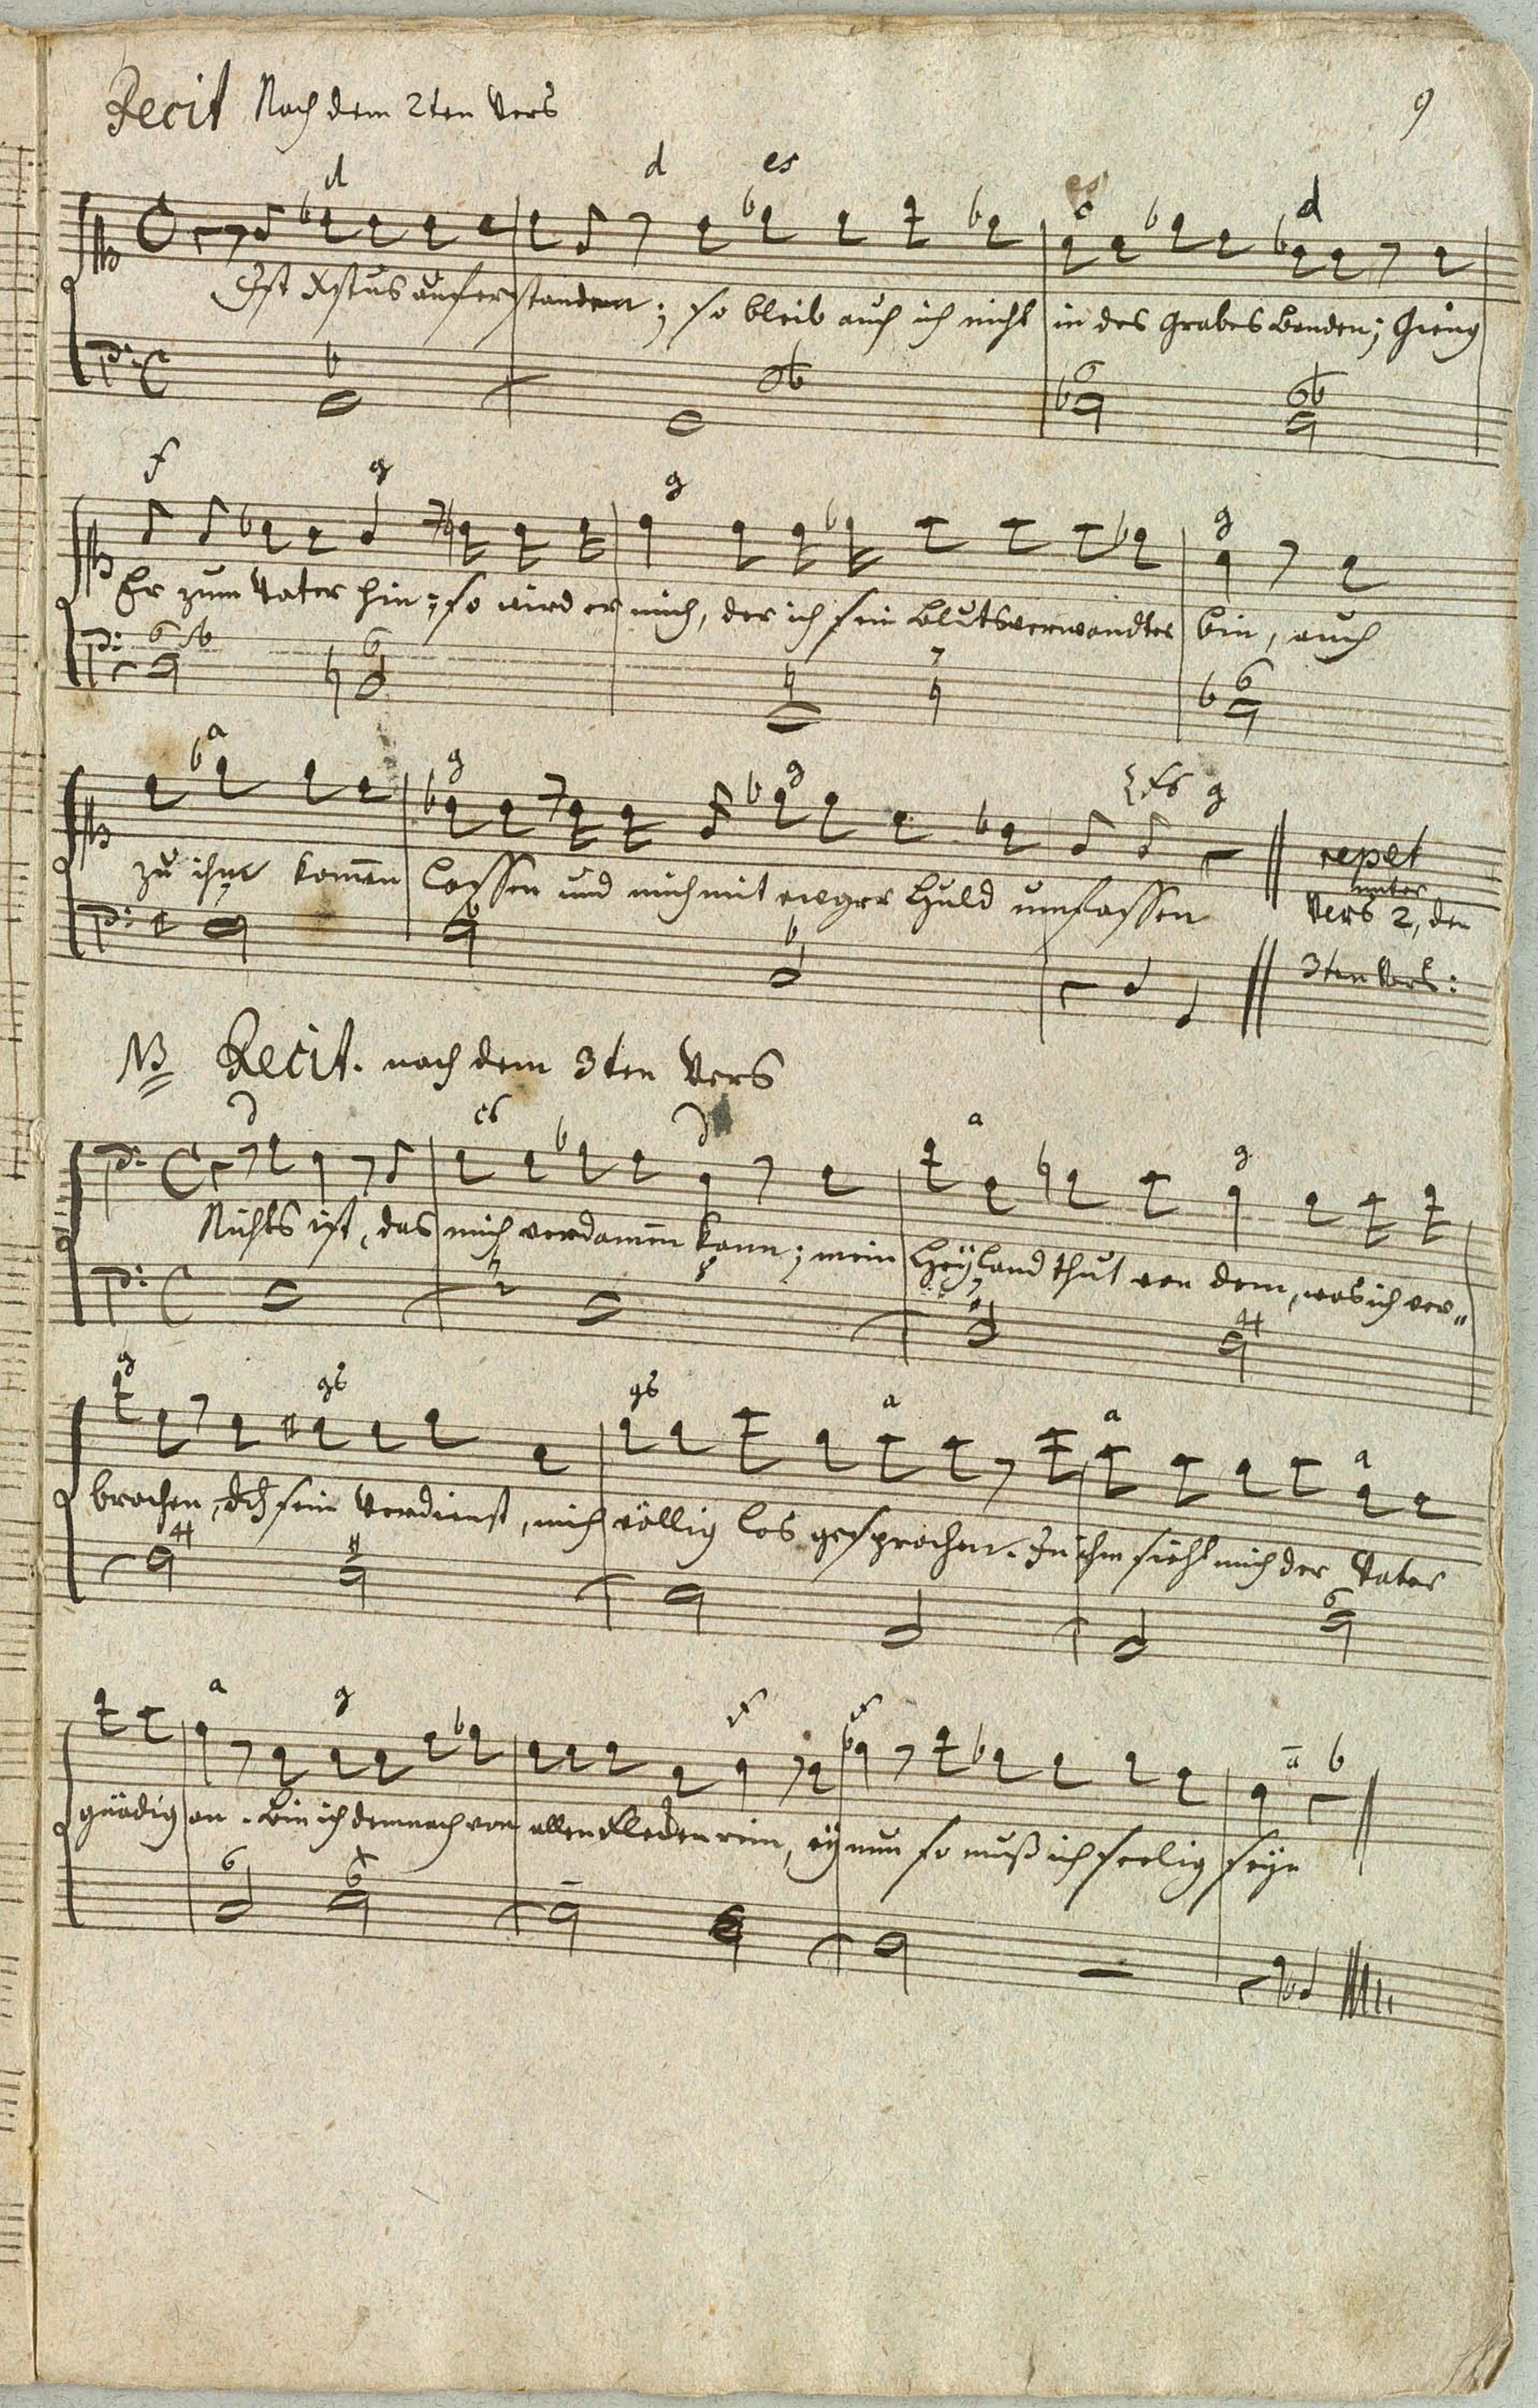 Recit Nach dem 2ten Vers
9
d d es es d
Ist Xstus auferstanden; so bleib auch ich nicht in des Grabes Banden; Gieng
f g g g
Er zum Vater hin; so wird er mich, der ich sein Blutsverwandter bin, auch
a g g fs g
zu ihm kommen lassen und mich mit ewger Huld umfassen
repet
unter
Vers 2, den
3ten Vers:
NB Recit. nach dem 3ten Vers
d es d a g
Nichts ist, das mich verdamm̄en kann; mein Heyland thut von dem, was ich ver-
g gs gs a a a
brochen, dch sein Verdienst, mich völlig los gesprochen. In ihm sieht mich der Vater
a g f f a b
gnädig an. Bin ich demnach von allen Flecken rein, ey nun so muß ich seelig seyn